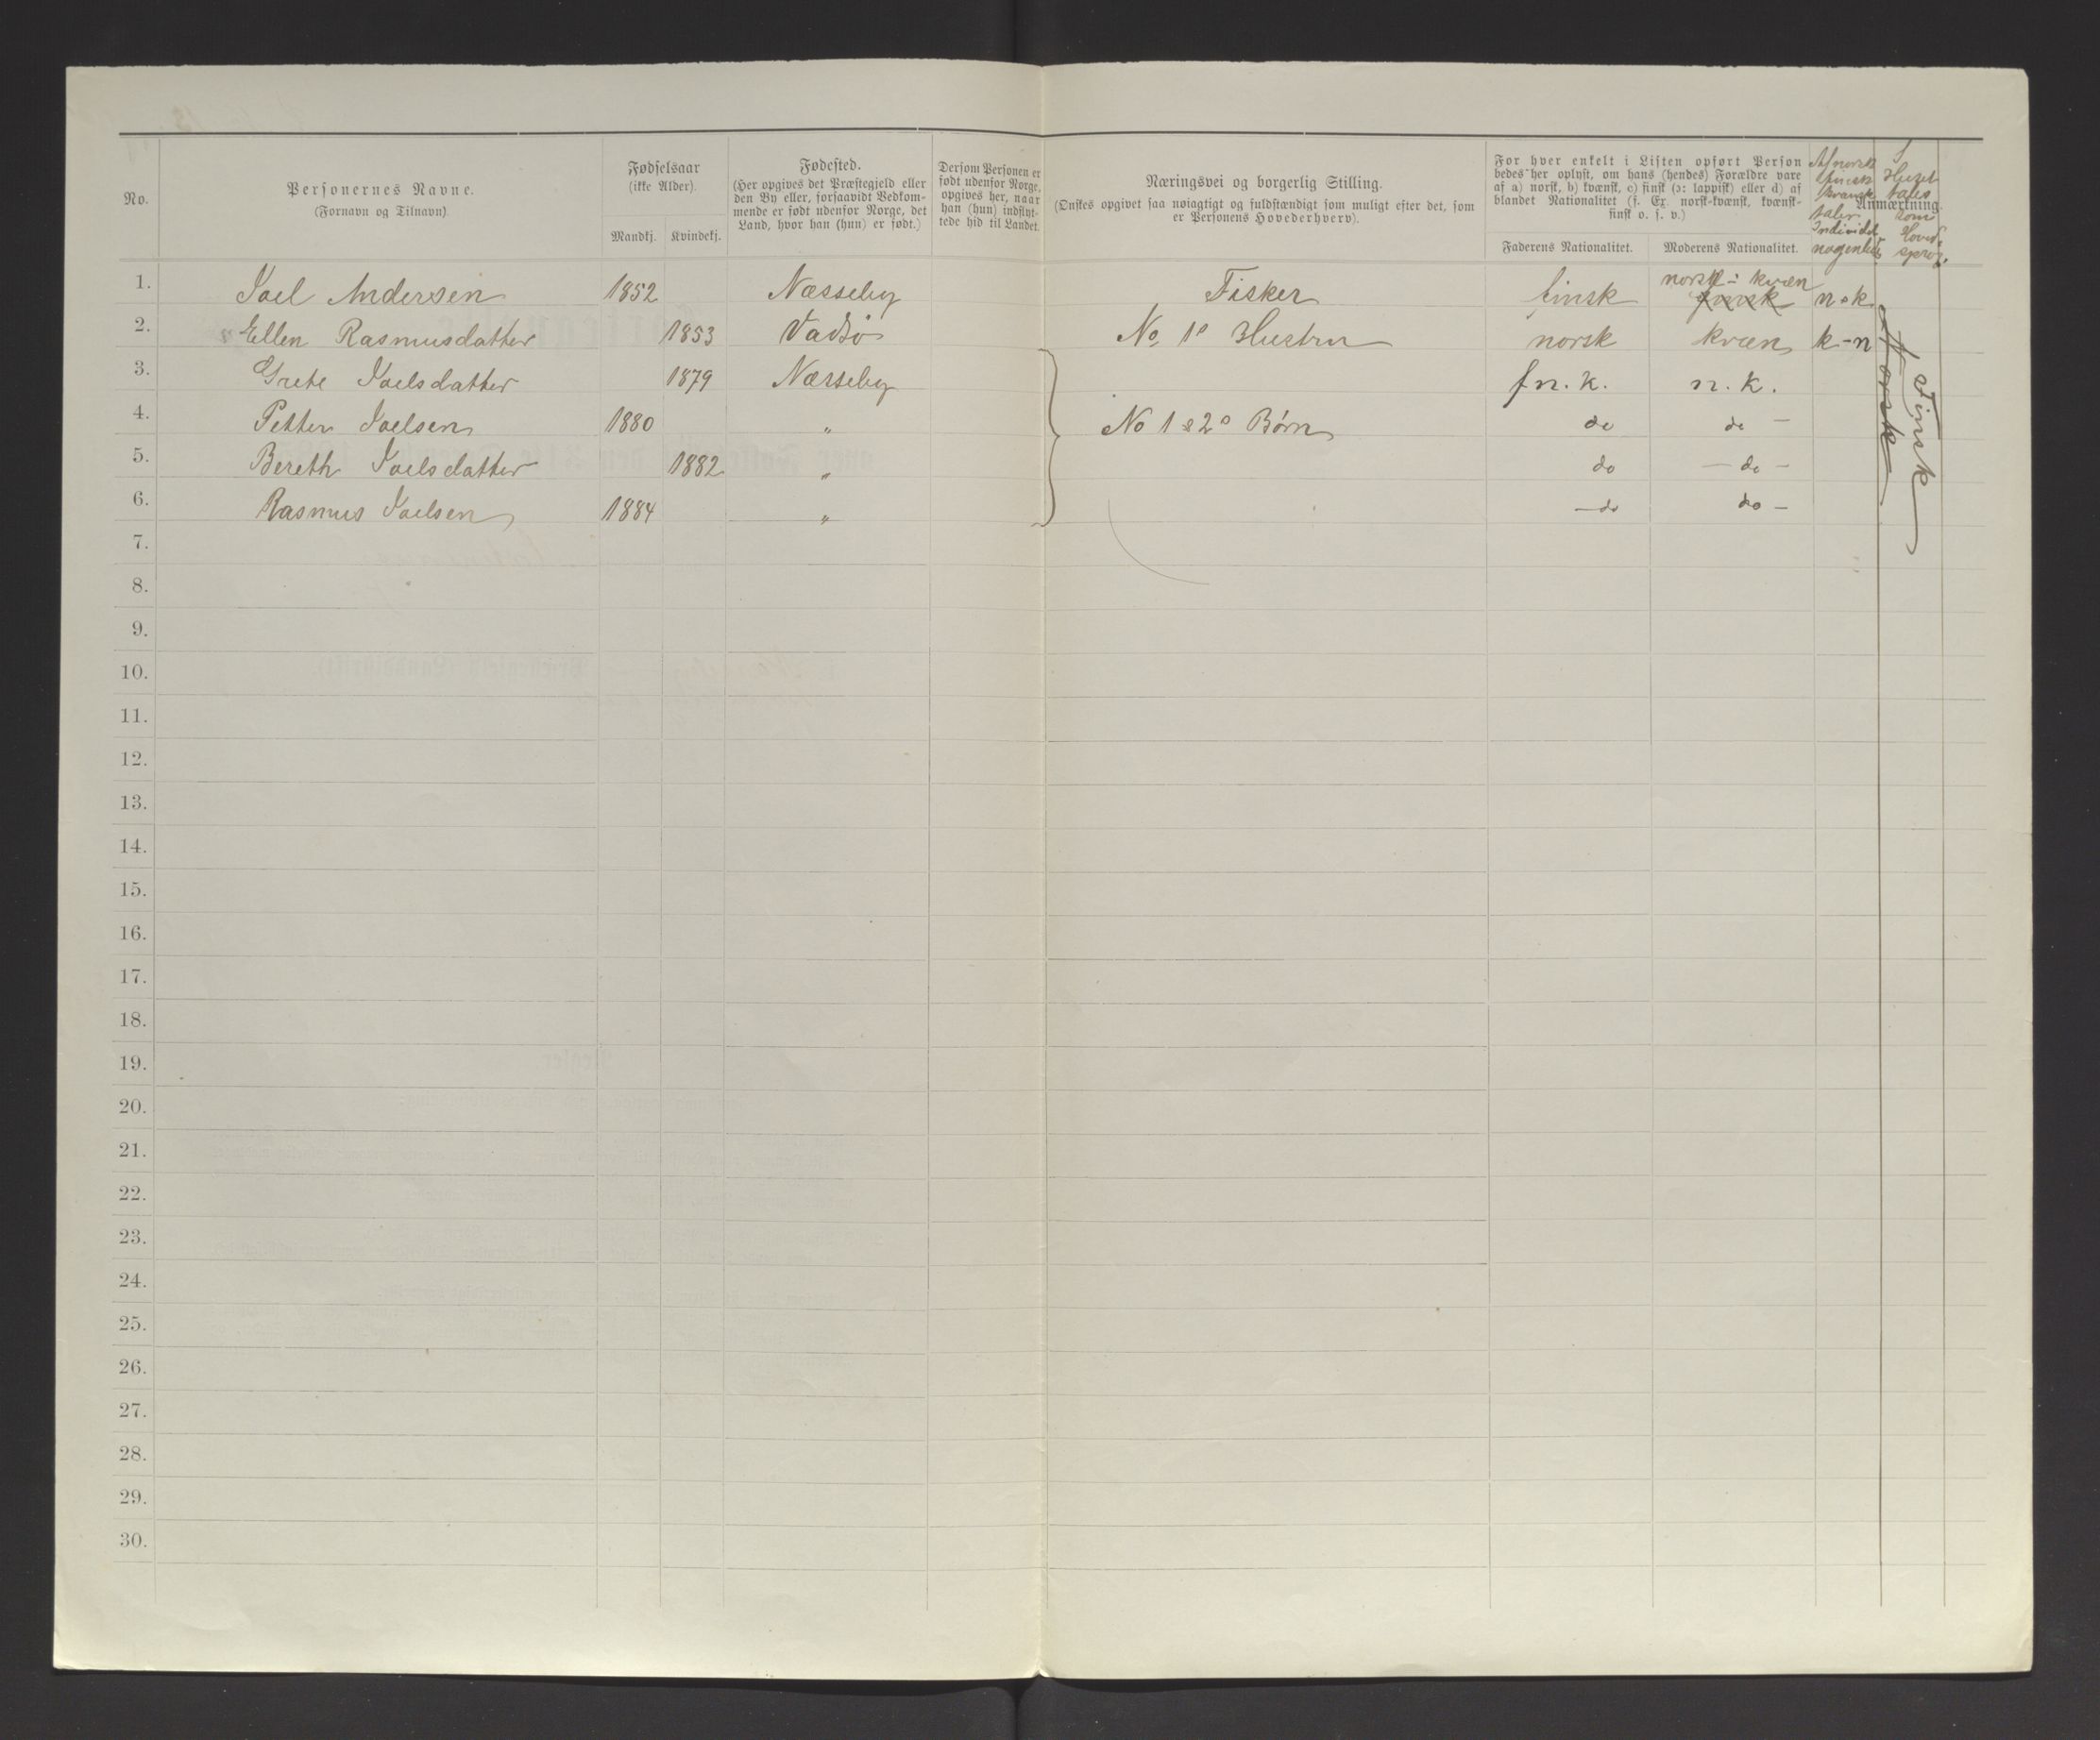 No.
Personernes Navne.
(Fornavn og Tilnavn)
Fødselsaar
(ikke Alder).
Mandkj. Kvindekj.
Fødested.
(Her opgives det Præstegjeld eller
den By eller, forsaavidt Vedkom-
mende er født udenfor Norge, det
Land, hvor han (hun) er født.)
Dersom Personen er
født udenfor Norge,
opgives her, naar
han (hun) indflyt-
tede hid til Landet.
Næringsvei og borgerlig Stilling.
(Ønskes opgivet saa nøiagtigt og fuldstændigt som muligt efter det, som
er Personens Hovederhverv).
For hver enkelt i Listen opført Person
bedes her oplyst, om hans (hendes) Forældre vare
af a) norsk, b) kvænsk, c) finsk (ɔ: lappisk) eller d) af
blandet Nationalitet (f. Ex. norsk-kvænsk, kvænsk-
finsk o. s. v.)
Faderens Nationalitet. Moderens Nationalitet.
Anmærkning.
Af norsk
finsk
kvænsk
taler
Individet
nogenledes
I
Huset
tales
som
Hoved-
sprog.
1. Joel Andersen 1852 Næsseby Fisker finsk norsk-kvæn finsk n.k.
2. " Ellen Rasmusdatter 1853 Vadsø No 1s Hustru norsk kvæn k-n
3. Grete Joelsdatter 1879 Næsseby fn.k. n.k.
4. Petter Joelsen 1880 " No 1 & 2s Børn do do -
5. Bereth Joelsdatter 1882 " do - do -
6. Rasmus Joelsen 1884 " - do do -
Norsk
Finsk
7.
8.
9.
10.
11.
12.
13.
14.
15.
16.
17.
18.
19.
20.
21.
22.
23.
24.
25.
26.
27.
28.
29.
30.